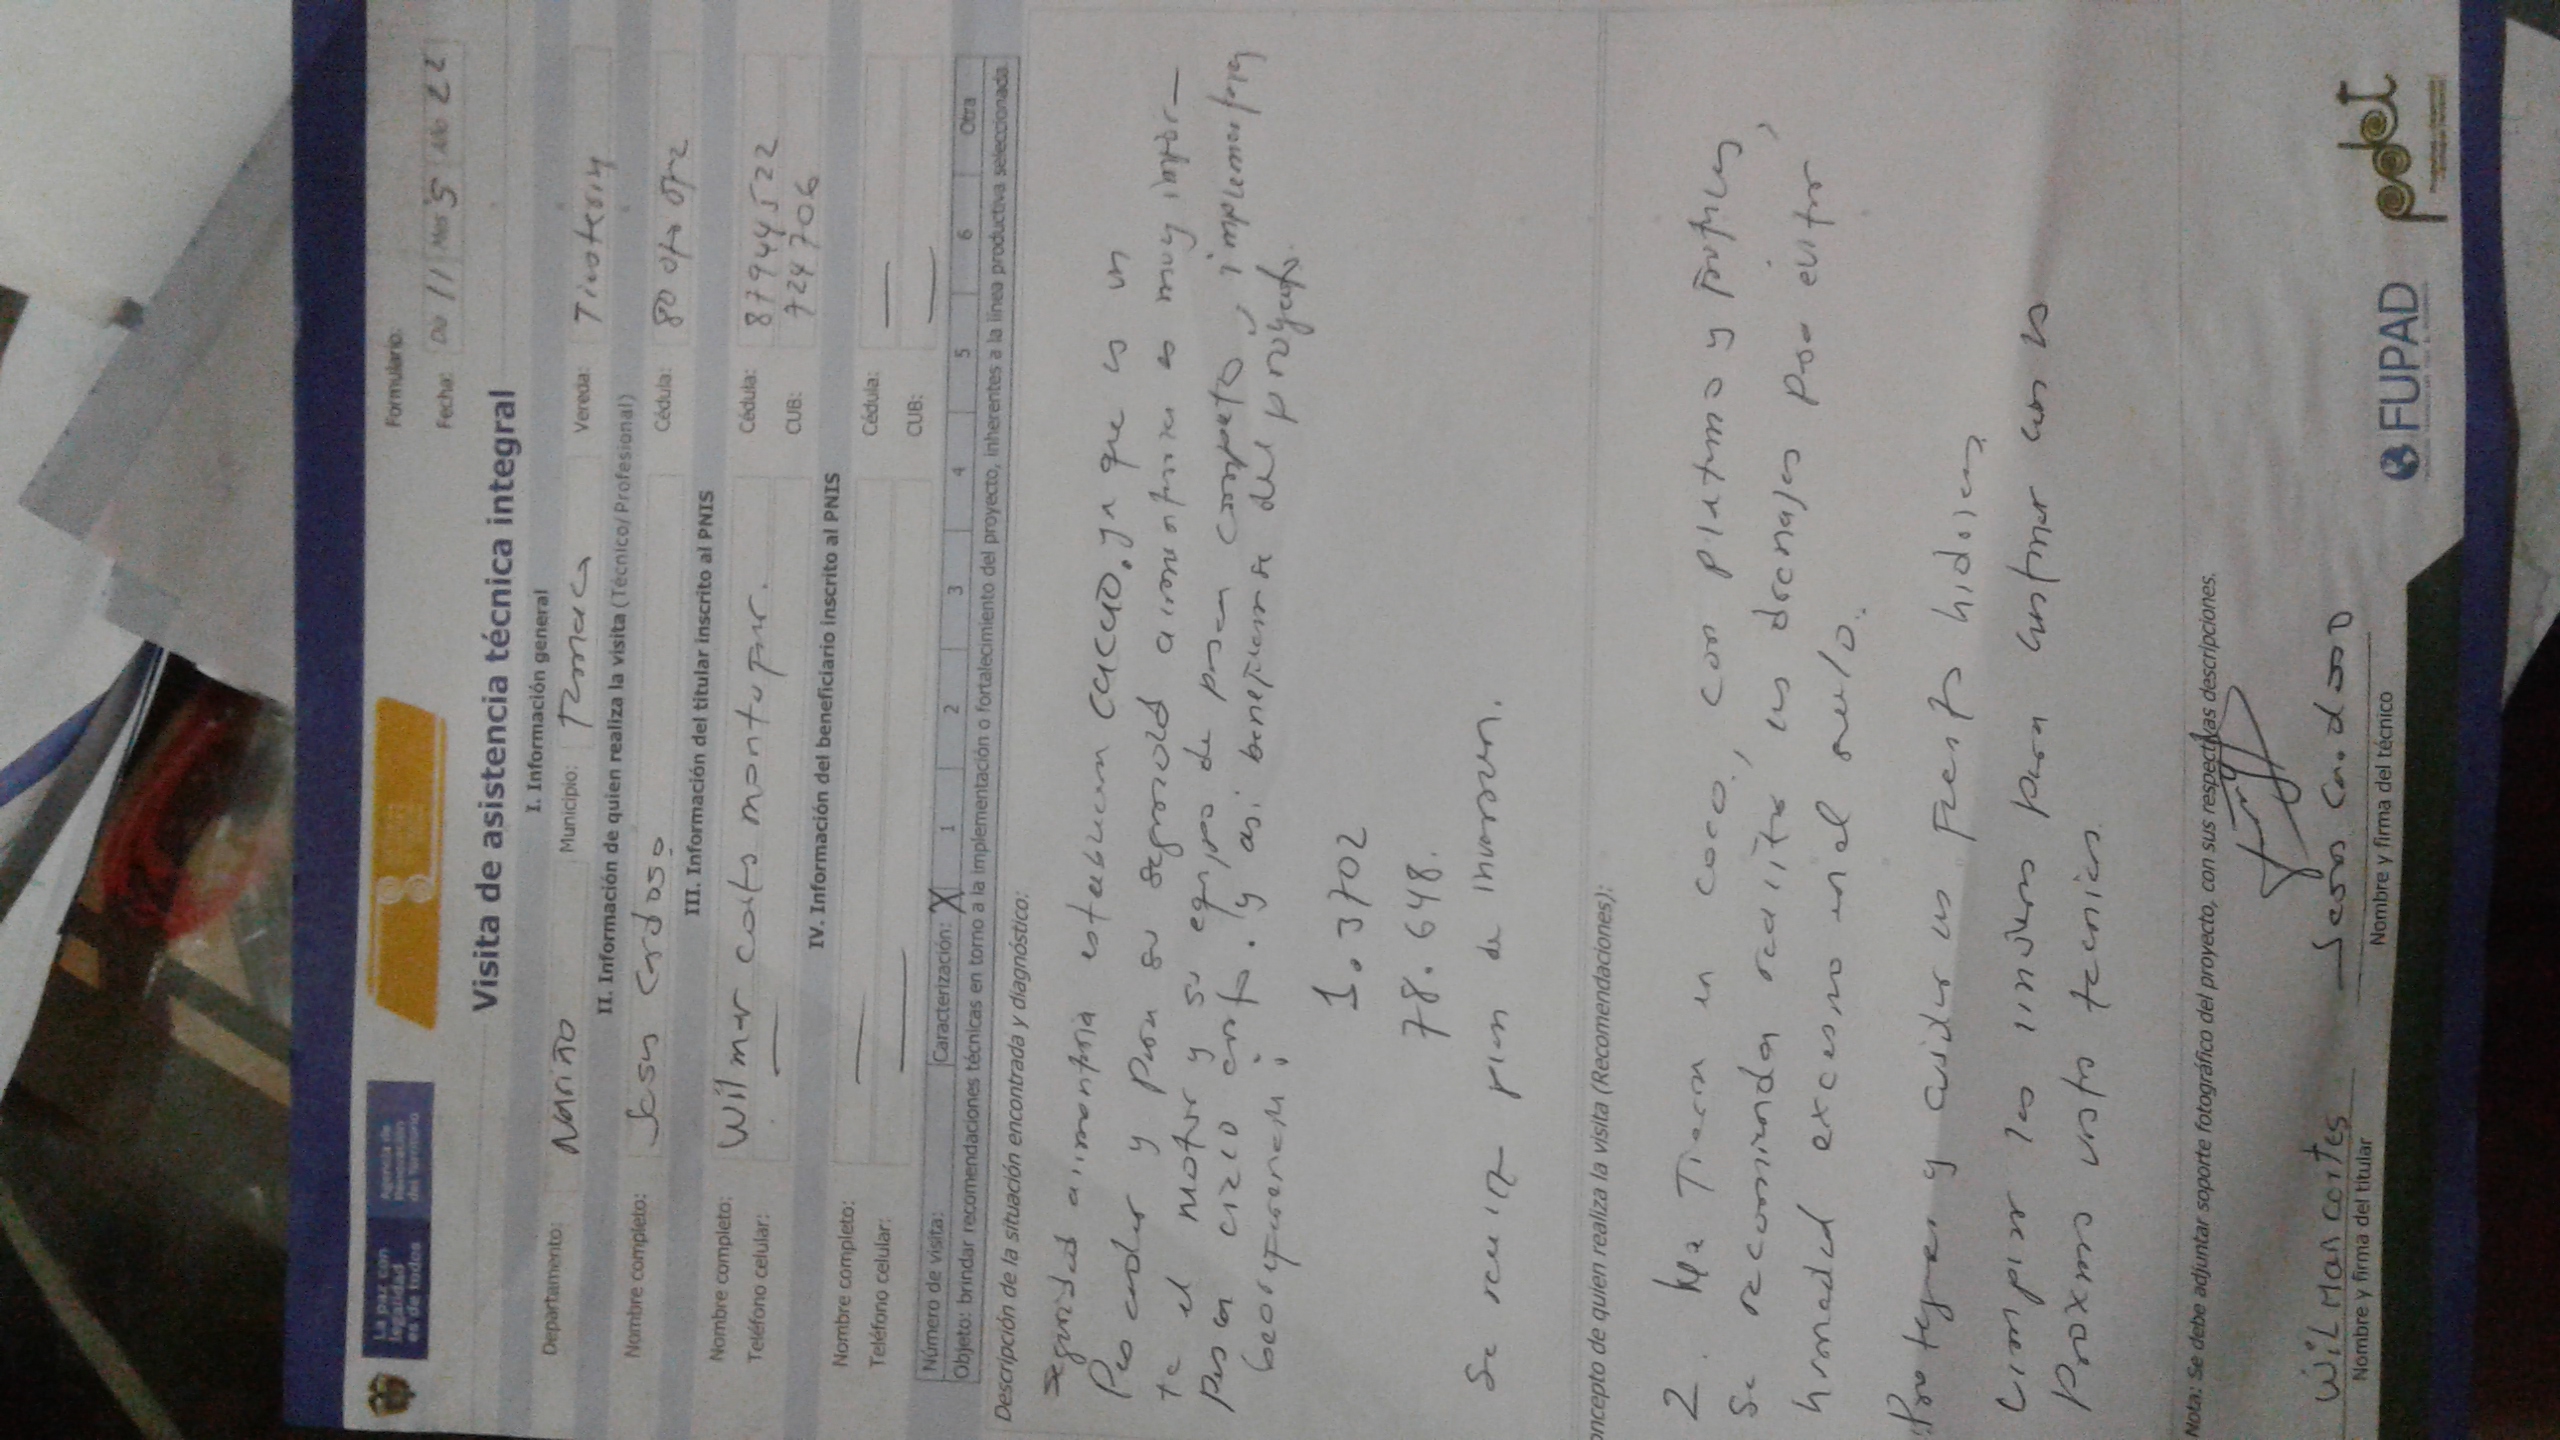 La paz con
legalidad
es de todos
Agencia de
Renovación
del Territorio
Formulario:
Fecha: Día 11 Mes 5 Año 22
Visita de asistencia técnica integral
I. Información general
Departamento: Nariño Municipio: Tumaco Vereda:
II. Información de quien realiza la visita (Técnico/Profesional)
Nombre completo: Jesus Cardoso Cédula:
III. Información del titular inscrito al PNIS
Nombre completo: Wilmar cortes montaño. Cédula: 87944522
Teléfono celular: — CUB: 724706
IV. Información del beneficiario inscrito al PNIS
Nombre completo: — Cédula: —
Teléfono celular: — CUB: —
Número de visita: Caracterización: X 1 2 3 4 5 6 Otra
Objeto: brindar recomendaciones técnicas en torno a la implementación o fortalecimiento del proyecto, inherentes a la línea productiva seleccionada.
Descripción de la situación encontrada y diagnóstico:
seguridad alimentaria establecer cacao. ya que es un
Pescador y para su seguridad alimentaria es muy impor-
te el motor y su equipo de pesca completo, implementar
pesca ciclo corto. y asi beneficiarse del proyecto
1.3702
78.648.
Se realiza plan de inversion.
oncepto de quien realiza la visita (Recomendaciones):
2. Ha Tierra en coco, con platano y frutales,
Se recomienda realizar los drenajes para evitar
humedad excesivo en el suelo.
Proteger y cuidar las Fuentes hidricas
limpiar los linderos para continuar con las
Proximas visitas tecnicas.
Nota: Se debe adjuntar soporte fotográfico del proyecto, con sus respectivas descripciones.
WilMar cortes
Nombre y firma del titular
Jesus Cardoso
Nombre y firma del técnico
FUPAD
pdet